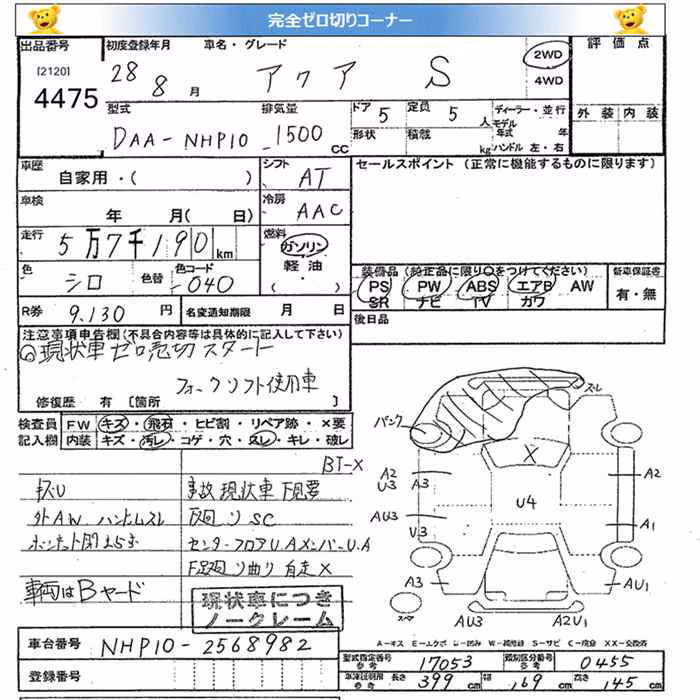 完全ゼロ切りコーナー
出品番号
[2120]
4475
初度登録年月
28 8 月
車名・グレード
アクア S
2WD
4WD
評価点
外装 内装
型式
DAA-NHP10
排気量
1500 cc
ドア 5
形状
定員 5 人
積載 kg
ディーラー・並行
モデル年式 年
ハンドル 左・右
車歴
自家用・( )
シフト
AT
セールスポイント (正常に機能するものに限ります)
車検
年 月( 日)
冷房
AAC
走行
5万7千190 km
燃料
ガソリン
軽油
( )
色
シロ
色替
色コード
040
装備品(純正品に限り○をつけてください)
PS PW ABS エアB AW
SR ナビ TV カワ
新車保証書
有・無
R券
9,130 円
名変通知期限 月 日
後日品
注意事項申告欄(不具合内容等は具体的に記入して下さい)
現状車 ゼロ売切 スタート
フォークリフト使用車
修復歴 有 [箇所 ]
検査員記入欄
FW キズ・飛石・ヒビ割・リペア跡・×要
内装 キズ・汚レ・コゲ・穴・スレ・キレ・破レ
BT-X
事故現状車 下見要
外AW ハンドルスレ
SC
センターフロアU Aメンバー U.A
曲り 自走×
車両はBヤード
現状車につき
ノークレーム
パンク
スレ
X
A2
U3
A3
U4
A2
AU3
U3
A1
A3
AU1
スペア
AU3
A2U1
A-キズ E-エクボ U-凹み W-補修跡 S-サビ C-腐食 XX-交換済
車台番号
NHP10-2568982
登録番号
型式指定番号
参考
17053
類別区分番号
参考
0455
車検証明用
参考
長さ 399 cm
幅 169 cm
高さ 145 cm